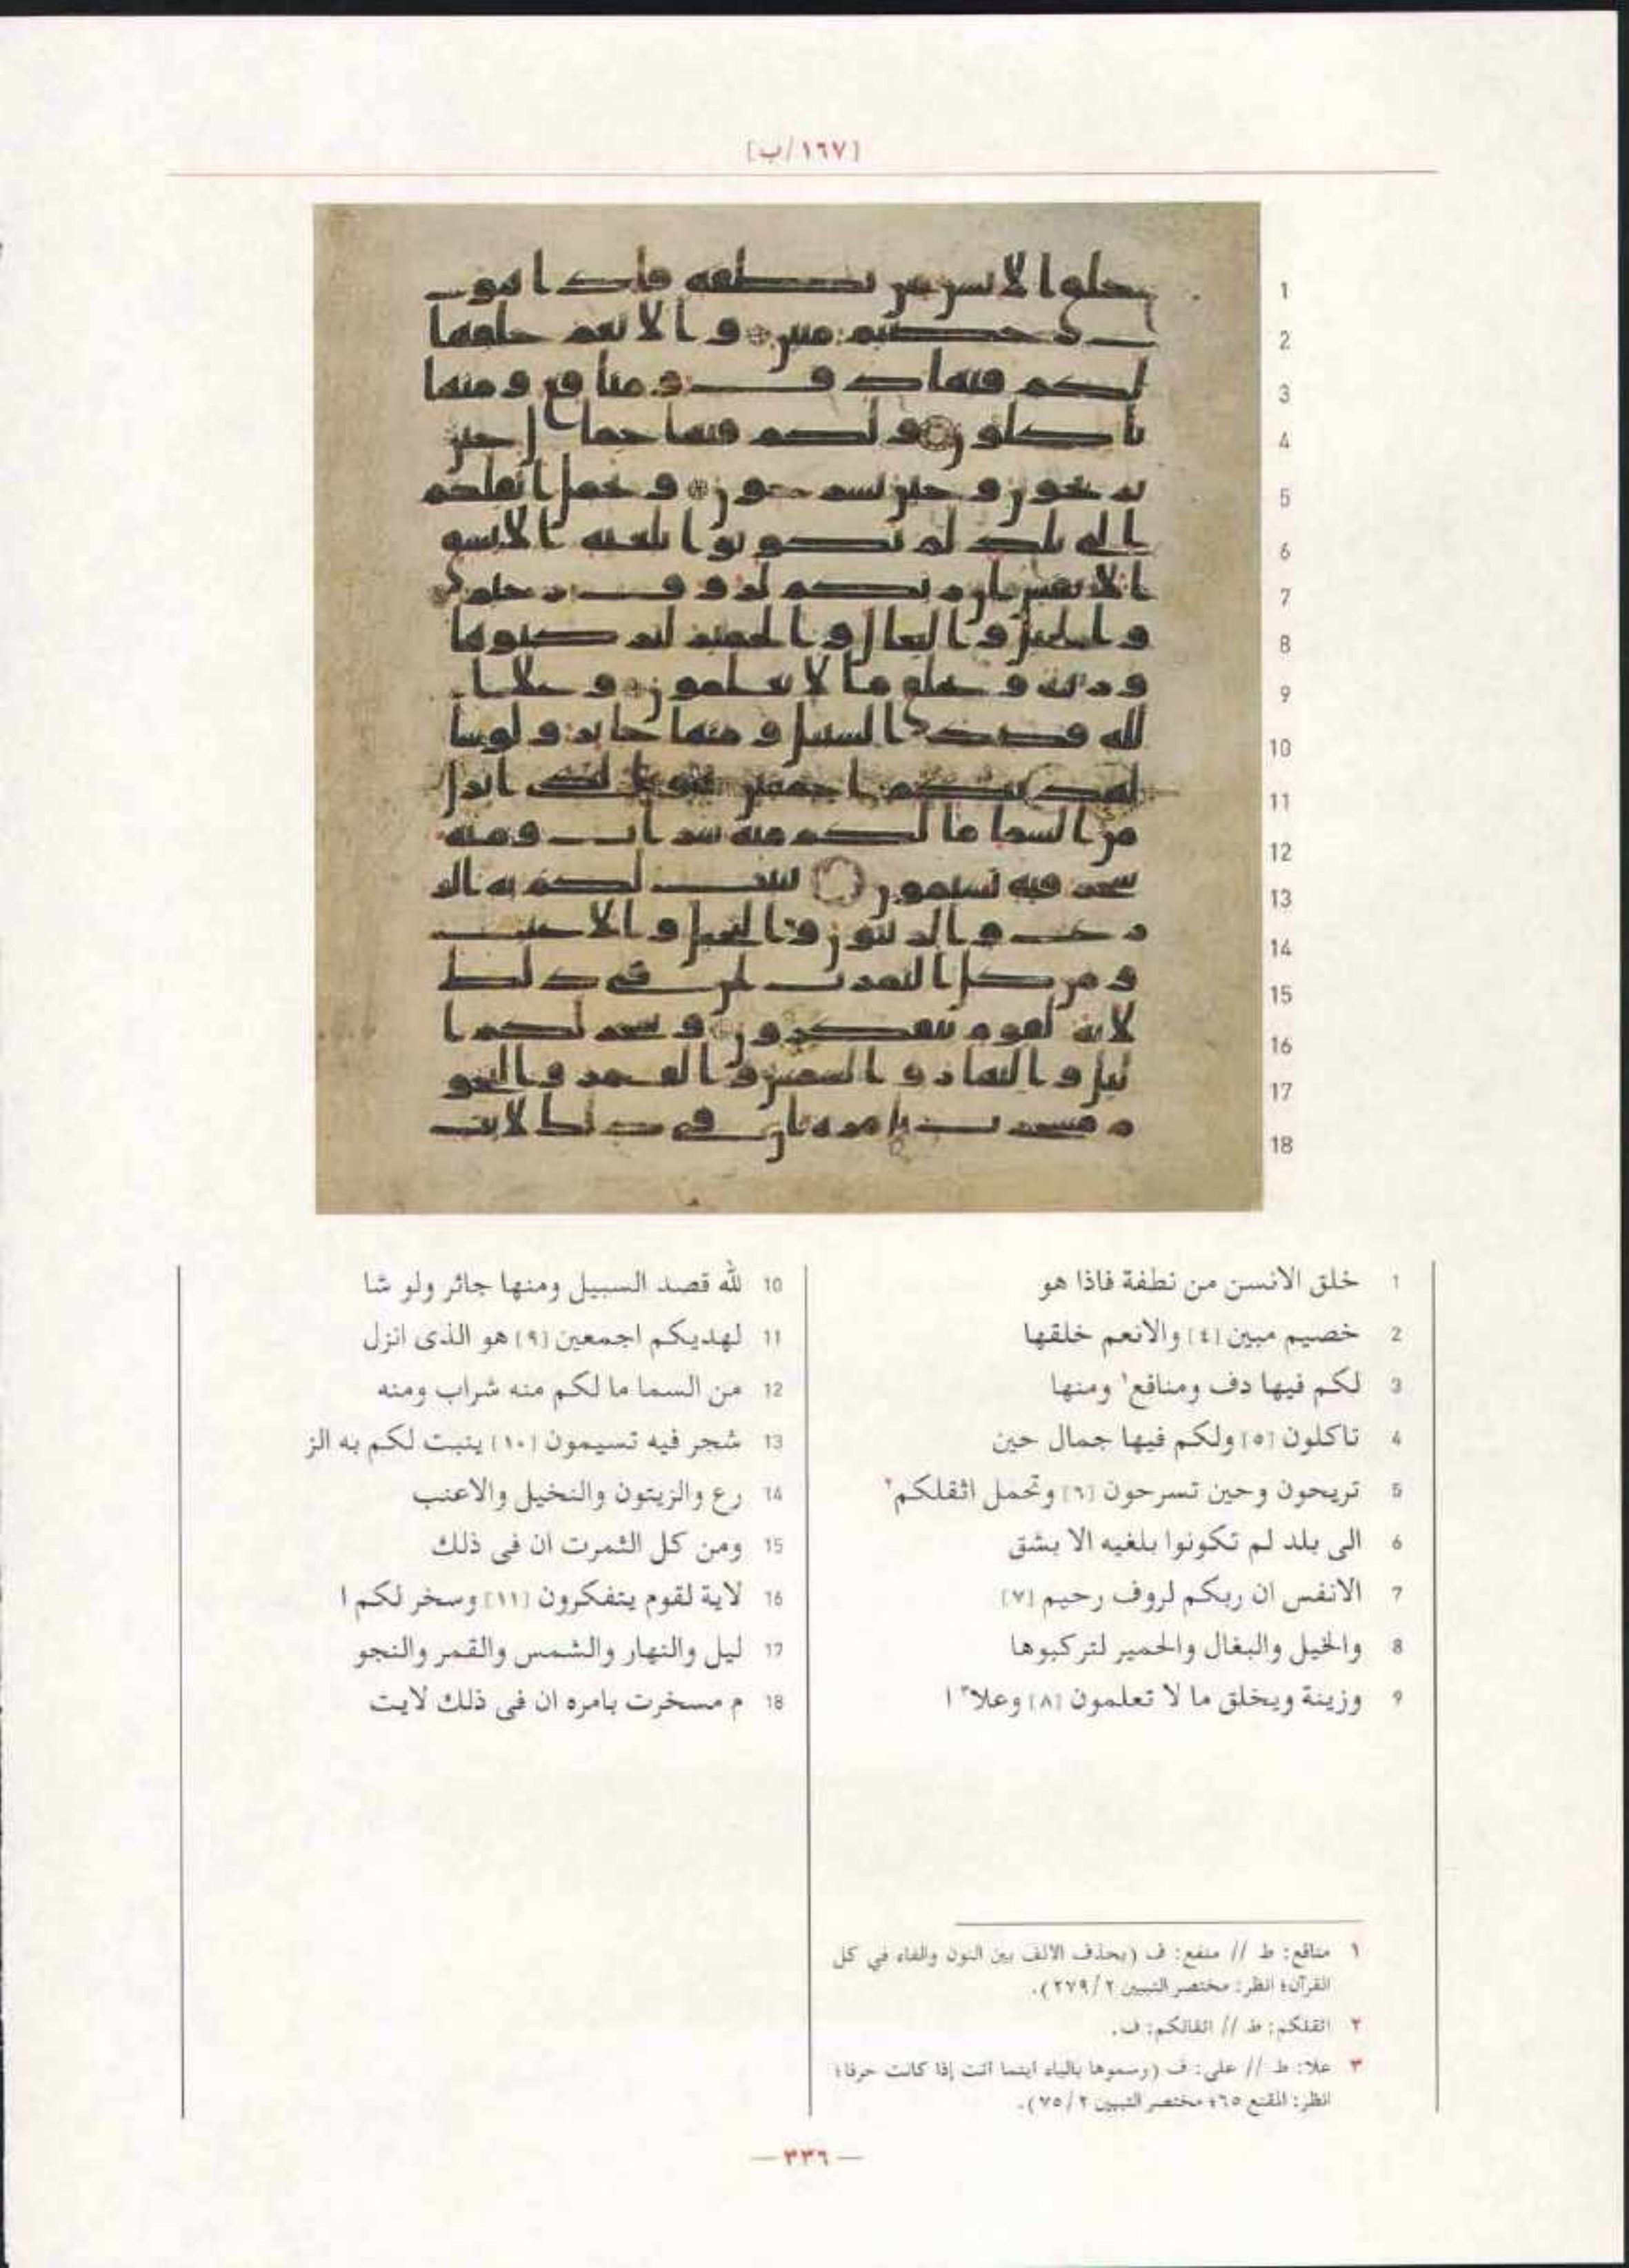 [١٦٧/ب]
1
2
3
4
5
6
7
8
9
10
11
12
13
14
15
16
17
18
1 خلق الانسن من نطفة فاذا هو
2 خصيم مبين [٤] والانعم خلقها
3 لكم فيها دف ومنافع١ ومنها
4 تاكلون [٥] ولكم فيها جمال حين
5 تريحون وحين تسرحون [٦] وتحمل اثقلكم٢
6 الى بلد لم تكونوا بلغيه الا بشق
7 الانفس ان ربكم لروف رحيم [٧]
8 والخيل والبغال والحمير لتركبوها
9 وزينة ويخلق ما لا تعلمون [٨] وعلا٣ ا
10 لله قصد السبيل ومنها جائر ولو شا
11 لهديكم اجمعين [٩] هو الذى انزل
12 من السما ما لكم منه شراب ومنه
13 شجر فيه تسيمون [١٠] ينبت لكم به الز
14 رع والزيتون والنخيل والاعنب
15 ومن كل الثمرت ان فى ذلك
16 لاية لقوم يتفكرون [١١] وسخر لكم ا
17 ليل والنهار والشمس والقمر والنجو
18 م مسخرت بامره ان فى ذلك لايت
١ منافع: ط // منفع: ف (بحذف الالف بين النون والفاء في كل
القرآن؛ انظر: مختصر التبيين ٢/ ٢٧٩).
٢ اثقلكم: ط // اثقالكم: ف.
٣ علا: ط // على: ف (رسموها بالياء اينما اتت إذا كانت حرفا؛
انظر: المقنع ٦٥؛ مختصر التبيين ٢/ ٧٥).
— ٣٣٦ —